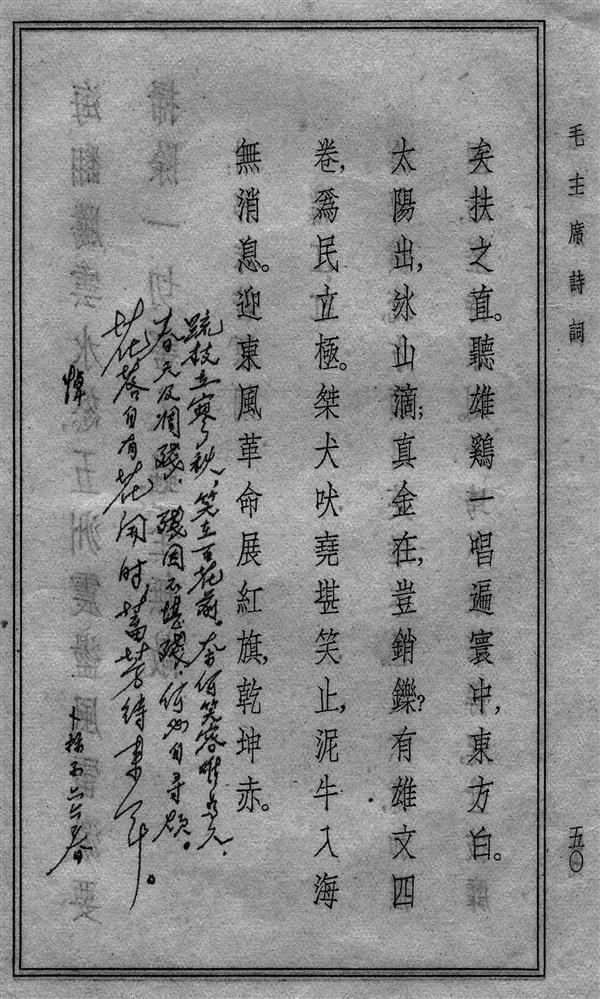 毛主席詩詞
五〇
矣扶之直。聽雄鷄一唱遍寰中，東方白。
太陽出，冰山滴；真金在，豈銷鑠？有雄文四
卷，爲民立極。桀犬吠堯堪笑止，泥牛入海
無消息。迎東風革命展紅旗，乾坤赤。
疏枝立寒秋，笑在百花前。奈何笑容難為久，
春天反凋殘。殘固不堪殘，何必自尋煩。
花落自有花開時，蓄芳待來年。
悼
卜　六六春